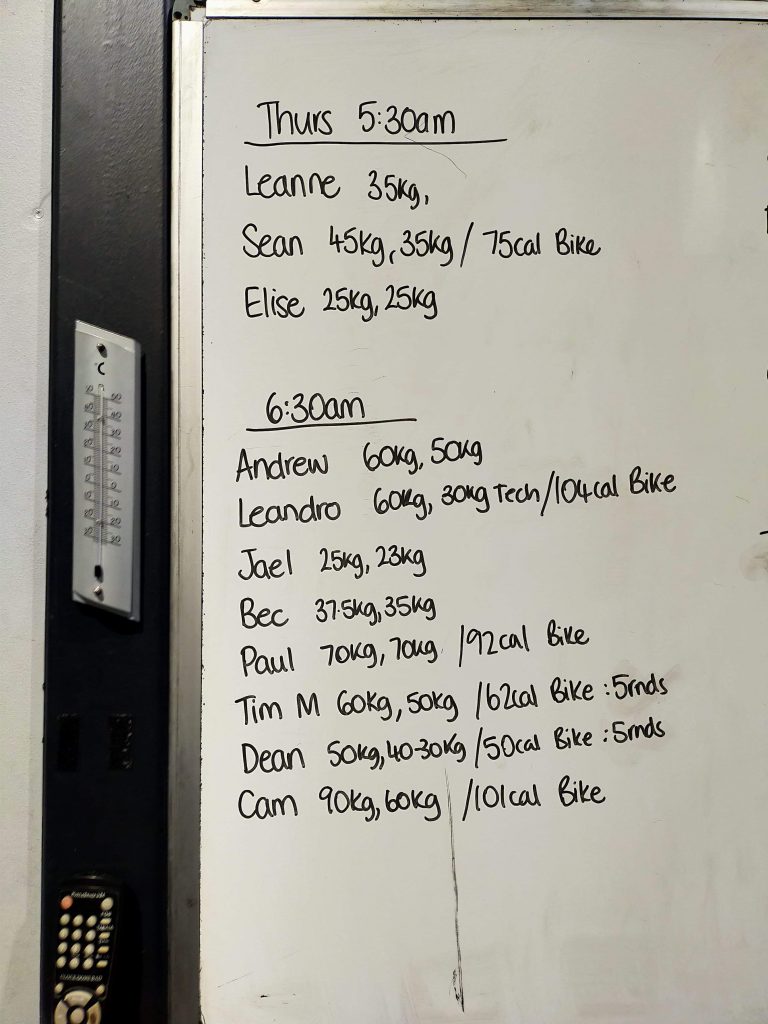 Thurs 5:30am
Leanne 35kg,
Sean 45kg, 35kg / 75cal Bike
Elise 25kg, 25kg
6:30am
Andrew 60kg, 50kg
Leandro 60kg, 30kg Tech/104cal Bike
Jael 25kg, 23kg
Bec 37.5kg, 35kg
Paul 70kg, 70kg /92cal Bike
Tim M 60kg, 50kg /62cal Bike : 5rnds
Dean 50kg, 40-30kg /50cal Bike : 5rnds
Cam 90kg, 60kg /101cal Bike
°C